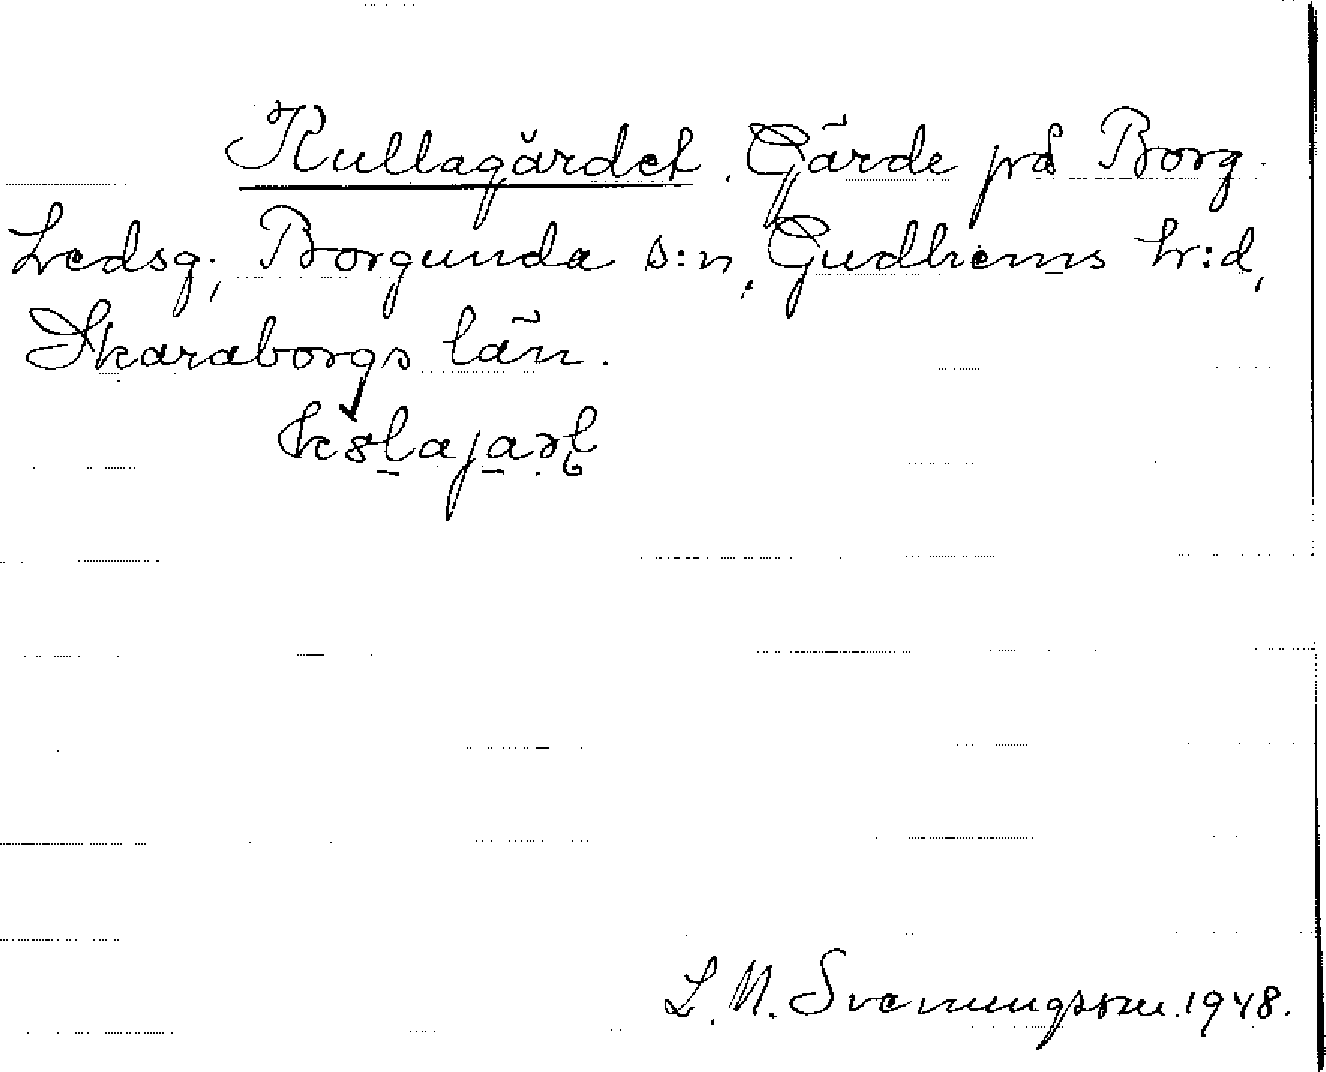 Kullagärdet. Gärde på Borg
Ledsg., Borgunda s:n, Gudhems hr:d,
Skaraborgs län.
L. N. Svenungsson. 1948.